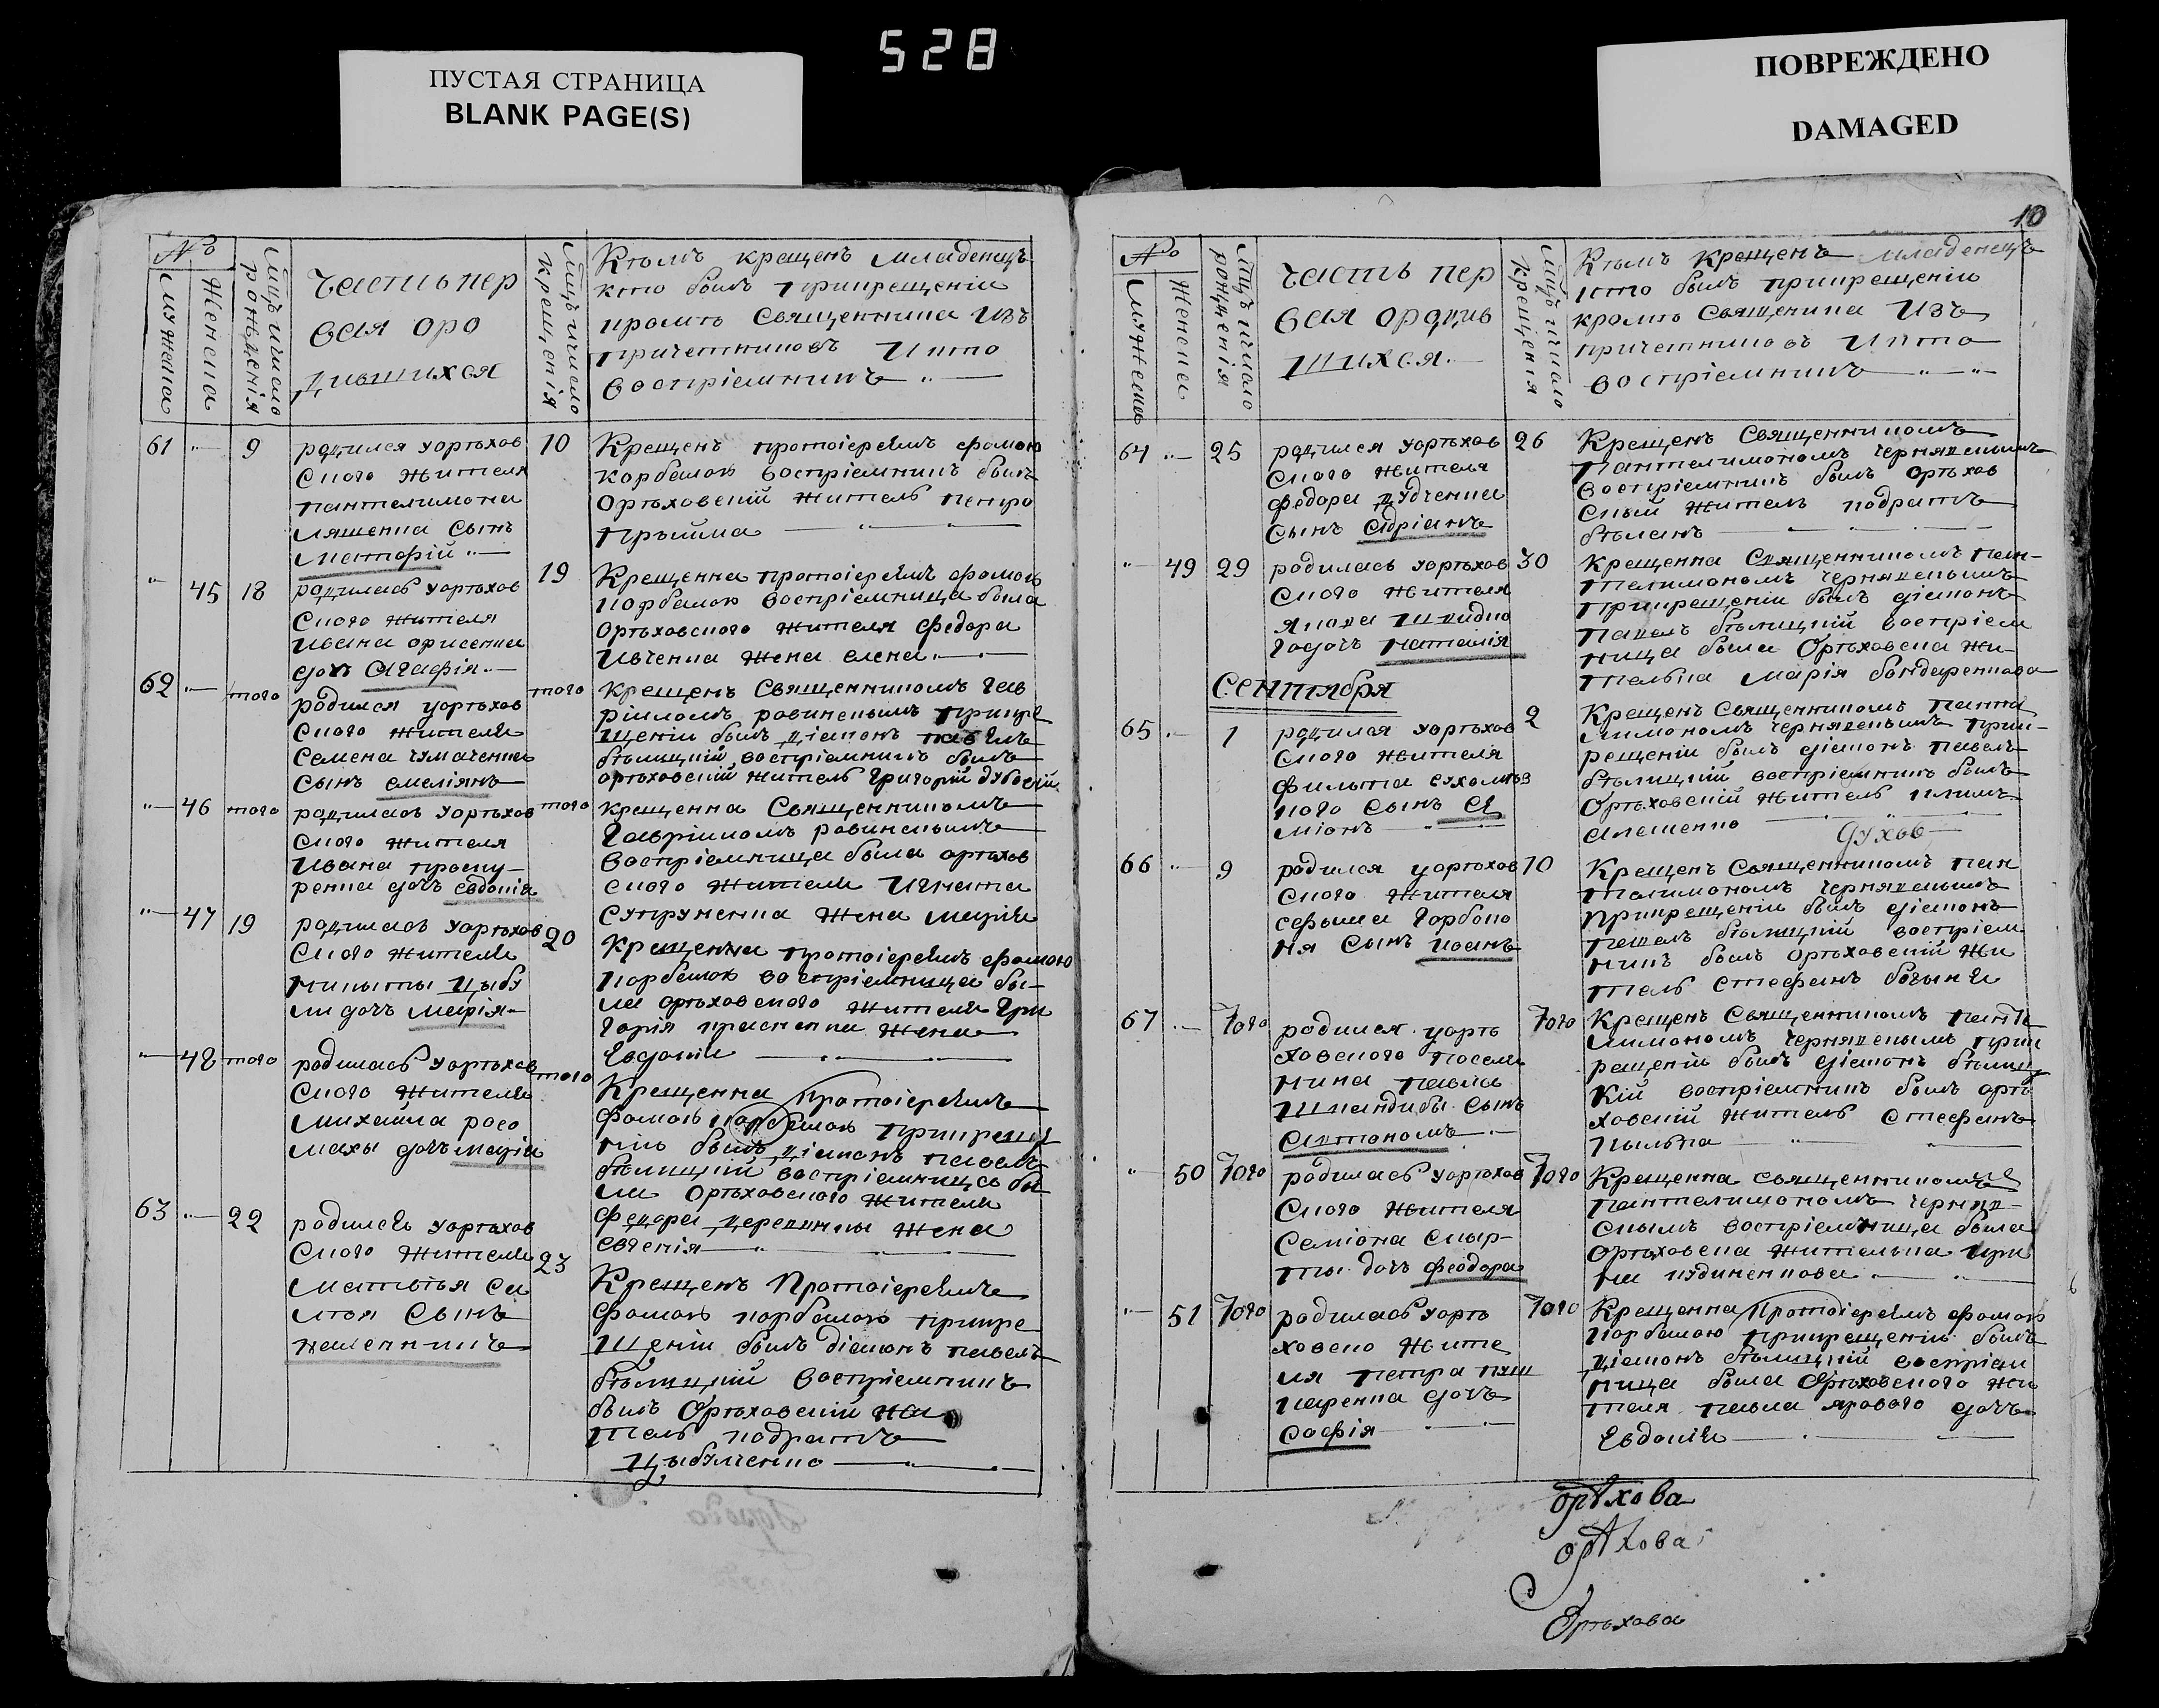 528
ПУСТАЯ СТРАНИЦА
BLANK PAGE(S)
ПОВРЕЖДЕНО
DAMAGED
№
мужеска
женска
рожденія
часть пер
вая оро
дившихся
крещенія
Кѣмъ крещенъ младенецъ
кто былъ прикрещеніи
кромѣ Священника Изъ
причетниковъ И кто
воспріемникъ
61 9
родился уорѣхов
ского жителя
пантелимона
ляшенка сынъ
10
Крещенъ протоіереемъ фомою
корбемою воспріемникъ былъ
Орѣховскій житель петро
45 18
родилась уорѣхов
ского жителя
Ивана
дочь Агафія
19
Крещенна протоіереемъ фомою
корбемою воспріемница была
Орѣховского жителя федора
Ивченка жена елена
62 того
родился уорѣхов
ского жителя
Семена чумаченка
сынъ емеліянъ
того
Крещенъ Священникомъ гав
ріиломъ равинскымъ прикре
щеніи былъ діяконъ павелъ
бѣлицкій воспріемникъ былъ
орѣховскій житель григорій
46 того
родилась уорѣхов
ского жителя
Ивана проску
ренка дочь евдокія
того
крещенна Священникомъ
Гавріиломъ равинскымъ
воспріемница была орѣхов
ского жителя Игната
Супруненка жена марія
47 19
родилась уорѣхов
ского жителя
никиты цыбу
ли дочь марія
20
Крещенна протоіереемъ фомою
корбемою воспріемница бы-
ла орѣховского жителя гри
горія красненка жена
Евдокія
48 того
родилась уорѣхов
ского жителя
михайла росо
махы дочь марія
того
Крещенна протоіереемъ
фомою корбемою прикреще
ніи былъ діяконъ павелъ
бѣлицкій воспріемница бы
ла Орѣховского жителя
федора жена
евгенія
63 22
родился уорѣхов
ского жителя
матвѣя са
сынъ
23
Крещенъ Протоіереемъ
фомою корбемою прикре
щеніи былъ діяконъ павелъ
бѣлицкій воспріемникъ
былъ Орѣховскій жи
тель кодратъ
Цыбуленко
10
№
мужеска
женска
часть пер
вая ородив
шихся
крещенія
Кѣмъ крещенъ младенецъ
кто былъ прикрещеніи
кромѣ Священика Изъ
причетниковъ И кто
воспріемникъ
64 25
родился уорѣхов
ского жителя
федора дудченка
сынъ
26
Крещенъ Священникомъ
Пантелимономъ чернявскымъ
воспріемникъ былъ орѣхов
скый житель кодратъ
49 29
родилась уорѣхов
ского жителя
якова шпидко
дочь наталія
30
Крещенна Священникомъ пан-
телимономъ чернявскымъ
прикрещеніи былъ діяконъ
павелъ бѣлицкій воспріем
ница была Орѣховска жи-
телька марія бондаренкова
Сентября
65 1
родился уорѣхов
ского жителя
кого сынъ Си
міонъ
2
Крещенъ Священникомъ панте
лимономъ чернявскымъ прик-
рещеніи былъ діяконъ павелъ
бѣлицкій воспріемникъ былъ
Орѣховскій житель климъ
алешенко
духов
66 9
родился уорѣхов
ского жителя
горбоко
ня сынъ иоанъ
10
Крещенъ Священникомъ пан
телимономъ чернявскымъ
прикрещеніи былъ діяконъ
павелъ бѣлицкій воспріем
никъ былъ Орѣховскій жи
тель стефанъ
67 того
родился уорѣ
ховского посели
нина павла
шкандыбы сынъ
Антономъ
того
Крещенъ Священникомъ панте
лимономъ чернявскымъ прик
рещеніи былъ діяконъ бѣлиц
кій воспріемникъ былъ орѣ
ховскій житель стефанъ
50 того
родилась уорѣхов
ского жителя
Симіона скыр-
ты дочь феодора
того
Крещенна священникомъ
пантелимономъ черняв-
скымъ воспріемница была
Орѣховска жителька ири
на
51 того
родилась уорѣ
ховско жите
ля петра пуш
каренка дочь
софія
того
Крещенна Протоіереемъ фомою
корбемою прикрещеніи былъ
діяконъ бѣлицкій воспріем
ница была Орѣховского жи
теля павла ярового дочь
Евдокія
орѣхова
орѣхова
Орѣхова